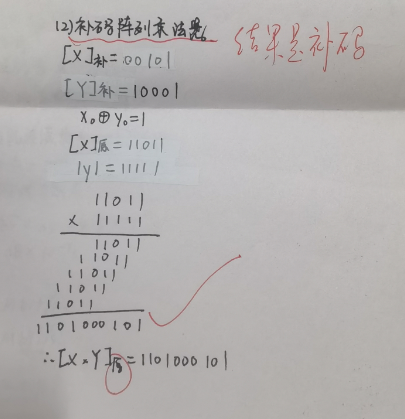 (2)补码阵列乘法器 结果是补码
[X]补=00101
[Y]补=10001
X₀⊕Y₀=1
[X]原=11011
|y|=11111
11011
× 11111
11011
11011
11011
11011
11011
1101000101
∴[X×Y]原=1101000101